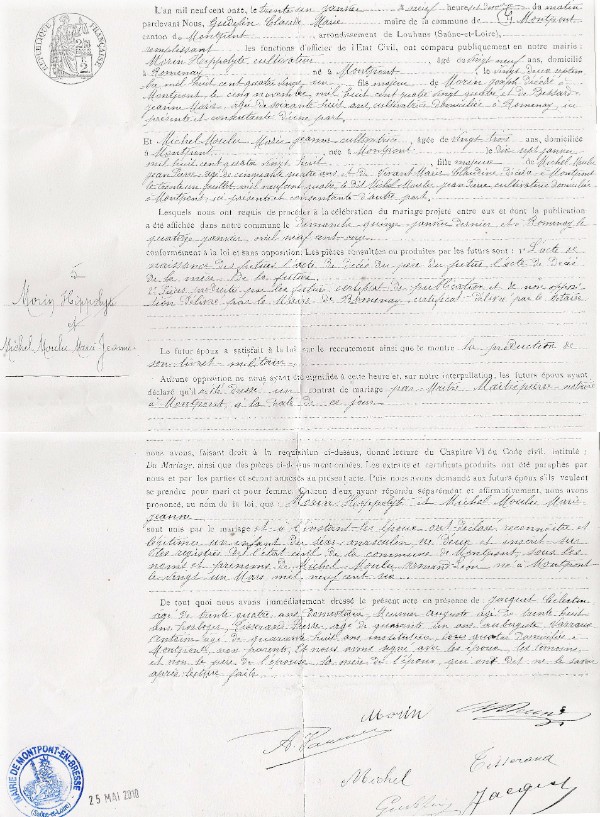 L'an mil neuf cent onze, le trente un janvier à neuf heures du matin
pardevant Nous, Guedelin Claude Marie maire de la commune de Montpont
canton de Montpont, arrondissement de Louhans (Saône-et-Loire),
remplissant les fonctions d'officier de l'Etat Civil, ont comparu publiquement en notre mairie:
Morin Hippolyte, cultivateur, âgé de vingt neuf ans, domicilié
à Romenay, né à Montpont, le vingt deux
mil huit cent quatre vingt un, fils majeur de Morin Joseph décédé à
Montpont le cinq novembre mil huit cent quatre vingt quatre et de
Jeanne Marie, âgée de soixante huit ans, cultivatrice domiciliée à Romenay, ici
présente et consentante d'une part.
Et Michel Moulu Marie Jeanne cultivatrice, agée de vingt trois ans, domiciliée
à Montpont, née à Montpont, le dix sept janvier
mil huit cent quatre vingt huit, fille majeure de Michel Moulu
Jean Pierre âgé de cinquante quatre ans et de Marie Claudine décédée à Montpont
le trente un juillet mil neuf cent quatre, le dit Michel Moulu Jean Pierre cultivateur domicilié
à Montpont, ici présent et consentant d'autre part.
Lesquels nous ont requis de procéder à la célébration du mariage projeté entre eux et dont la publication
a été affichée dans notre commune le Dimanche quinze janvier dernier et à Romenay le
quatorze janvier mil neuf cent onze
conformément à la loi et sans opposition. Les pièces consultées ou produites par les futurs sont: 1° L'acte de
naissance des futurs l'acte de décès du père du futur, l'acte de décès
de la mère de la future
2° Pièces produites par les futurs certificat de publication et de non opposi-
sion délivré par le Maire de Romenay, certificat délivré par le notaire
5
Morin Hippolyte
et
Michel Moulu Marie Jeanne
Le futur époux a satisfait à la loi sur le recrutement ainsi que le montre la production de
son livret militaire
Aucune opposition ne nous ayant été signifiée à cette heure et, sur notre interpellation, les futurs époux ayant
déclaré qu'il a été dressé un contrat de mariage par Maître notaire
à Montpont à la date de ce jour
nous avons, faisant droit à la réquisition ci-dessus, donné lecture du Chapitre VI du Code civil, intitulé:
Du Mariage, ainsi que des pièces ci-dessus mentionnées. Les extraits et certificats produits ont été paraphés par
nous et par les parties et seront annexés au présent acte. Puis nous avons demandé aux futurs époux s'ils veulent
se prendre pour mari et pour femme. Chacun d'eux ayant répondu séparément et affirmativement, nous avons
prononcé, au nom de la loi, que Morin Hippolyte et Michel Moulu Marie
Jeanne
sont unis par le mariage et à l'instant les époux ont déclaré reconnaître et
légitimer un enfant du sexe masculin né d'eux et inscrit sur
les registres de l'état civil de la commune de Montpont, sous les
noms et prénoms de Michel Moulu né à Montpont
le vingt un Mars mil neuf cent dix.
De tout quoi nous avons immédiatement dressé le présent acte en présence de Jacquet Célestin
âgé de trente quatre ans, Auguste âgé de trente huit
ans Pierre, âgé de quarante un ans aubergiste
âgé de quarante huit ans, instituteur, tous quatre domiciliés à
Montpont, non parents, et nous avons signé avec les époux, les témoins,
et non le père de l'épouse la mère de l'époux, qui ont dit ne le savoir
après lecture faite.
Morin
Michel
Tisserand
Jacquet
MAIRIE DE MONTPONT-EN-BRESSE
(Saône-et-Loire)
25 MAI 2010